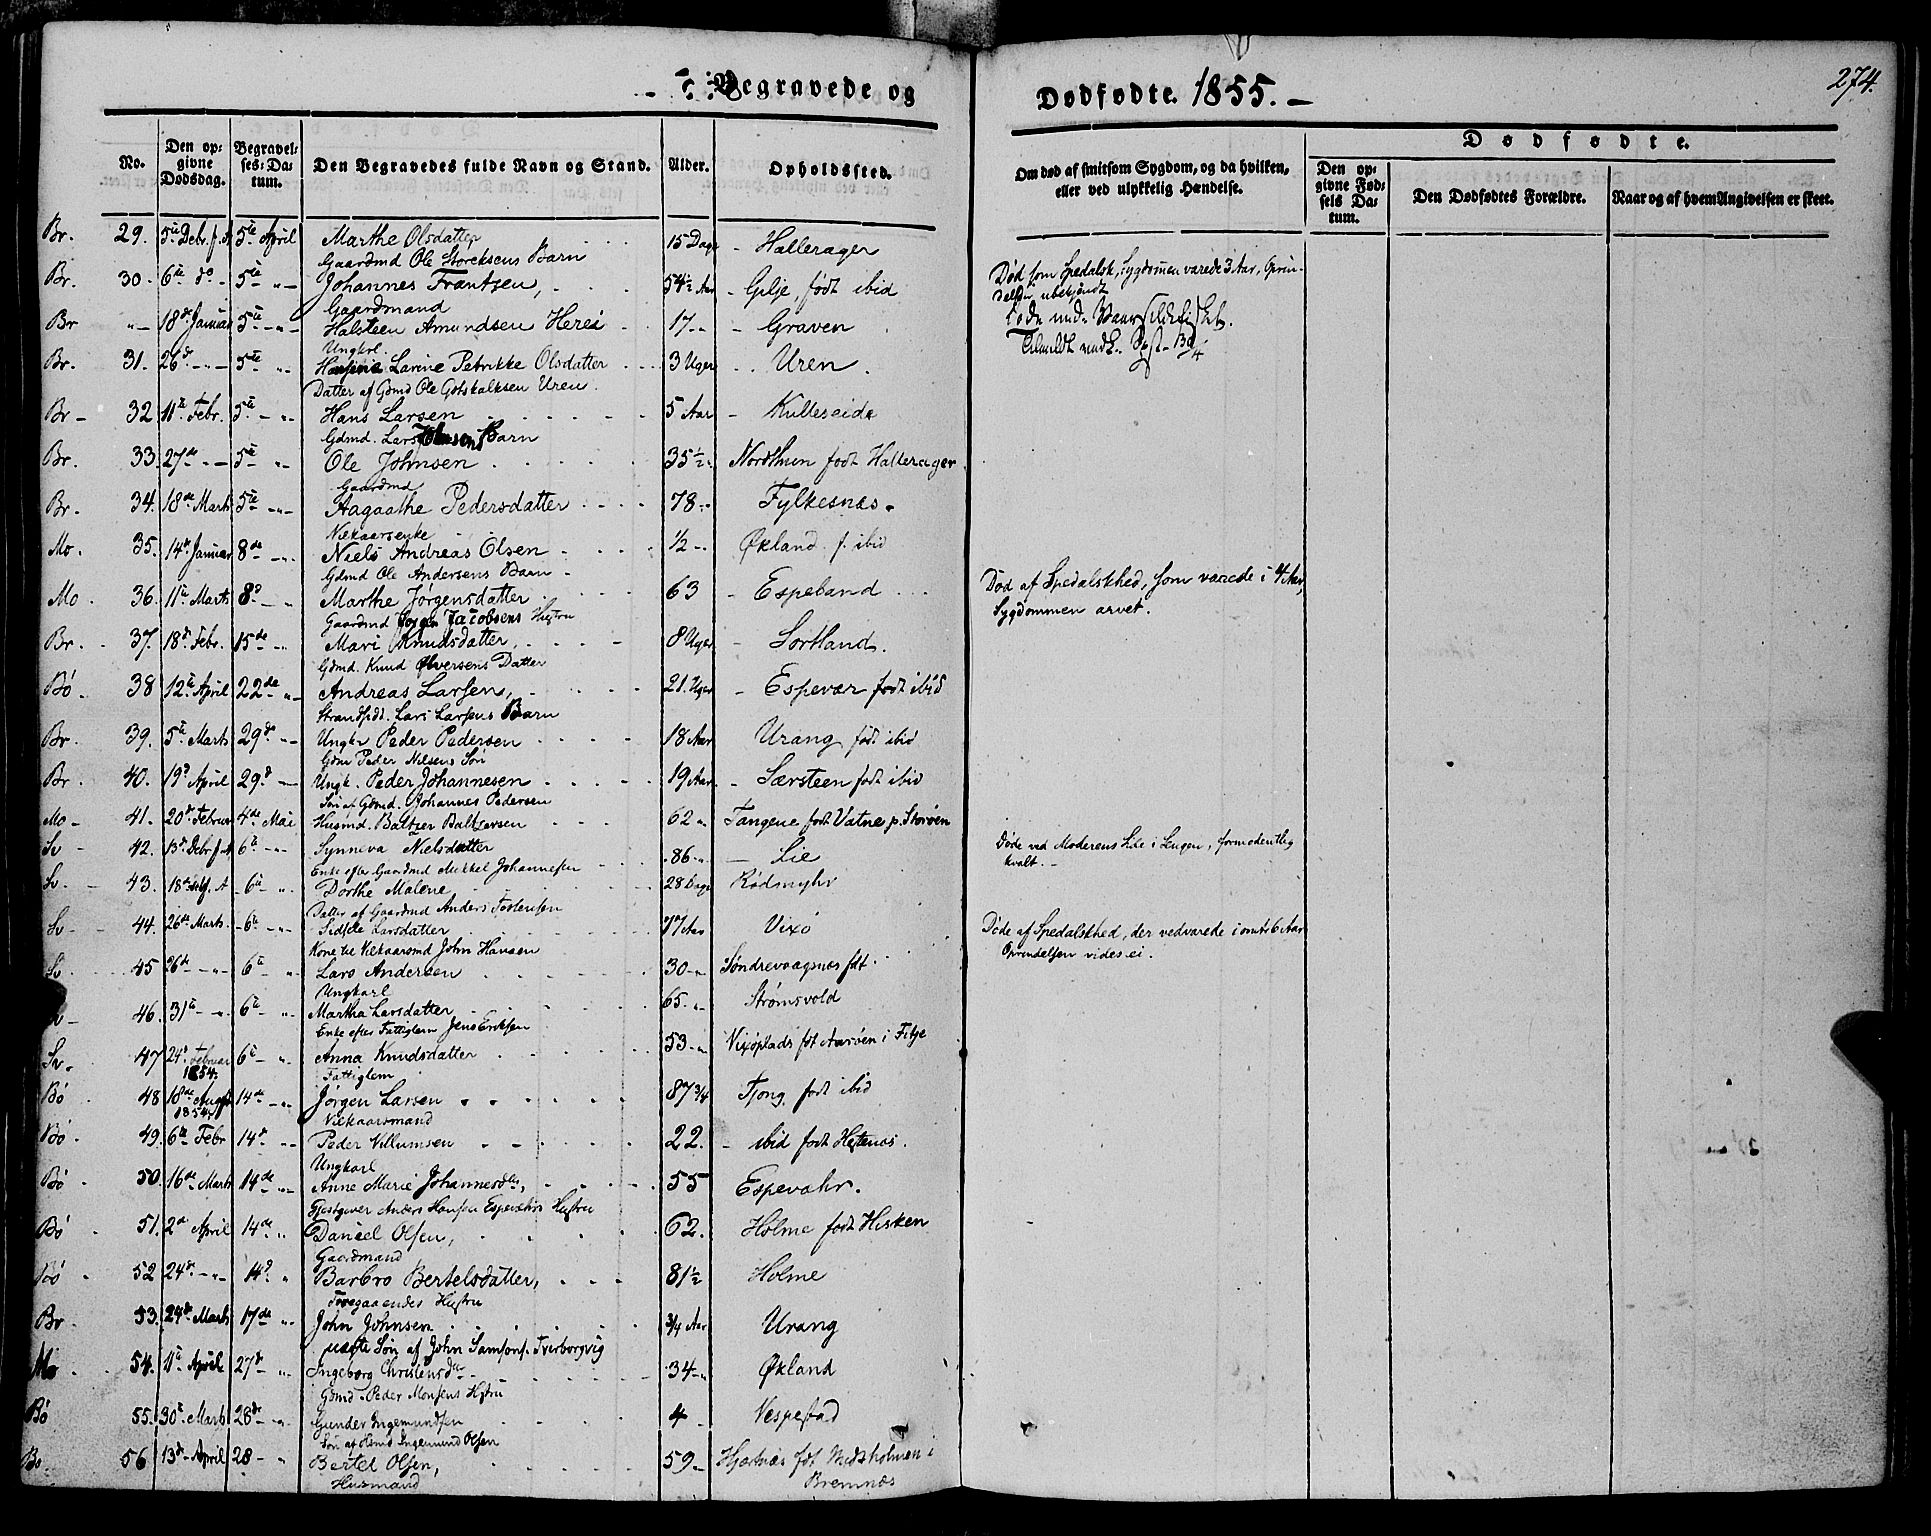 Begravede og
Dødfødte. 1855. –
274.
No.
Den opgivne Dødsdag.
Begravelses-Datum.
Den Begravedes fulde Navn og Stand.
Alder.
Opholdssted.
Om død af smitsom Sygdom, og da hvilken, eller ved ulykkelig Hændelse.
Dødfødte.
Den opgivne Fødsels Datum.
Den Dødfødtes Forældre.
Naar og af hvem Angivelsen er skeet.
Br. 29. 5te Debr. f. A 5te April Marthe Olsdatter 15 Dage – Hallerager
Gaardmd Ole Storeksens Barn
Br. 30. 6te do 5te " Johannes Frantsen, 54½ Aar – Gilje, født ibid Død som Spedalsk, Sygdommen varede 3 Aar, Oprin-
Gaardmand delsen ubekjendt
Br " – 18de Januar 5te " Halsteen Amundsen Herei 17 " – Graven Døde under Vaarsildefisket.
Ungkrl. Tilmeldt
Br. 31. 26de " 5te " Larine Petrikke Olsdatter 3 Uger Uren.
Datter af Gdmd Ole Gotskalksen Uren.
Br – 32 11te Febr. 5te " Hans Larsen 5 Aar – Kulleseide
Gdmd. Lars Barn
Br. 33. 27de " 5te " Ole Johnsen 35½ " Nordhun født Hallerager
Gaardmd
Br. 34. 18de Marts 5te " Aagaathe Pedersdatter 78 " Fylkesnæs.
Vilkaarsenke
Mo. 35. 14de Januar 8de " Niels Andreas Olsen ½ " Økland f. ibid
Gdmd Ole Andersens Barn –
Mo. 36. 11te Marts 8de " Marthe Jørgensdatter 63 – Espeland Død af Spedalskhed, som varede i 4 Aar,
Gaardmd Jacobsens Hustru Sygdommen arvet.
Br. 37. 18de Febr. 15de " Mari Knudsdatter, 8 Uger – Sortland.
Gdmd. Knud Ølversens Datter
Bö. 38 12te April 22de " Andreas Larsen, 21. Uger – Espevær født ibid
Strandsidd. Lars Larsens Barn
Br. 39. 5te Marts 29de " Ungkr Peder Pedersen 18 Aar Urang født ibid
Gdm Peder Nielsens Søn
Br. 40. 19de April 29de " Ungk. Peder Johannesen 19 Aar – Særsteen født ibid
Søn af Gdmd. Johannes Pedersen
Mo – 41. 20de Februar 4de Mai Husmd. Baltzer Baltzersen 62 " Tangene født Vatne p. Storøen
Sv – 42. 13de Debr f. A 6te " Synneva Nielsdatter 86 " – Lie Døde ved Moderens Side i Sengen, formodentlig
Enke efter Gaardmd Mikkel Johannesen kvalt. –
Sv. 43. 18de A 6te " Dorthe Malene, 28 Dage Rødsmyhr
Datter af Gaardmd Anders Tostensen
Sv – 44. 26de Marts 6te " Sidsele Larsdatter 77 Aar Vixø Døde af Spedalskhed, der vedvarede i omtr 6 Aar
Kone til Vilkaarsmd John Hansen Oprindelsen vides ei.
Sv. 45 26de " 6te " Lars Andersen 30 " Søndrevaagnæs fdt
Ungkarl
Sv – 46. 31te " 6te " Martha Larsdatter 65. " Strømsvold
Enke efter Fattiglem Jens Eriksen
Sv. 47 24de Februar 6te " Anna Knudsdatter 53 " Vixøplads fdt Aarøen i Fitje
1854. Fattiglem
Bö 48 18de August 14de " Jørgen Larsen 87¾ Tjong født ibid
1854. Vilkaarsmand
Bö. 49. 6te Febr 14de " Peder Villumsen 22. – ibid født Hestenæs.
Ungkarl
Bö 50 16de Marts 14de " Anne Marie Johannesdtr, 55 Espevæhr.
Gjestgiver Anders Hansen Espevæhrs Hustru
Bö 51. 2de April 14de " Daniel Olsen, 62. Holme født Hisken
Gaardmand
Bö 52 24de " 14de " Barbro Bertelsdatter, 81½ Holme
Foregaaendes Hustru
Br. 53. 24de Marts 17de " John Johnsen ¾ Aar Urang
uægte Søn af John Samsons. Tverborgvig
Mo 54. 11te April 27de " Ingeborg Christensdtr 34 " Økland
Gdmd. Peder Monsens Hustru
Bö 55. 30te Marts 28de " Gunder Ingemundsen 4 – Vespestad
Søn af Hsmd Ingemund Olsen
Bö. 56 13de April 28 – " Bertel Olsen, 59 – Hjertnæs fdt Medsholmen i
Husmand Bremnæs